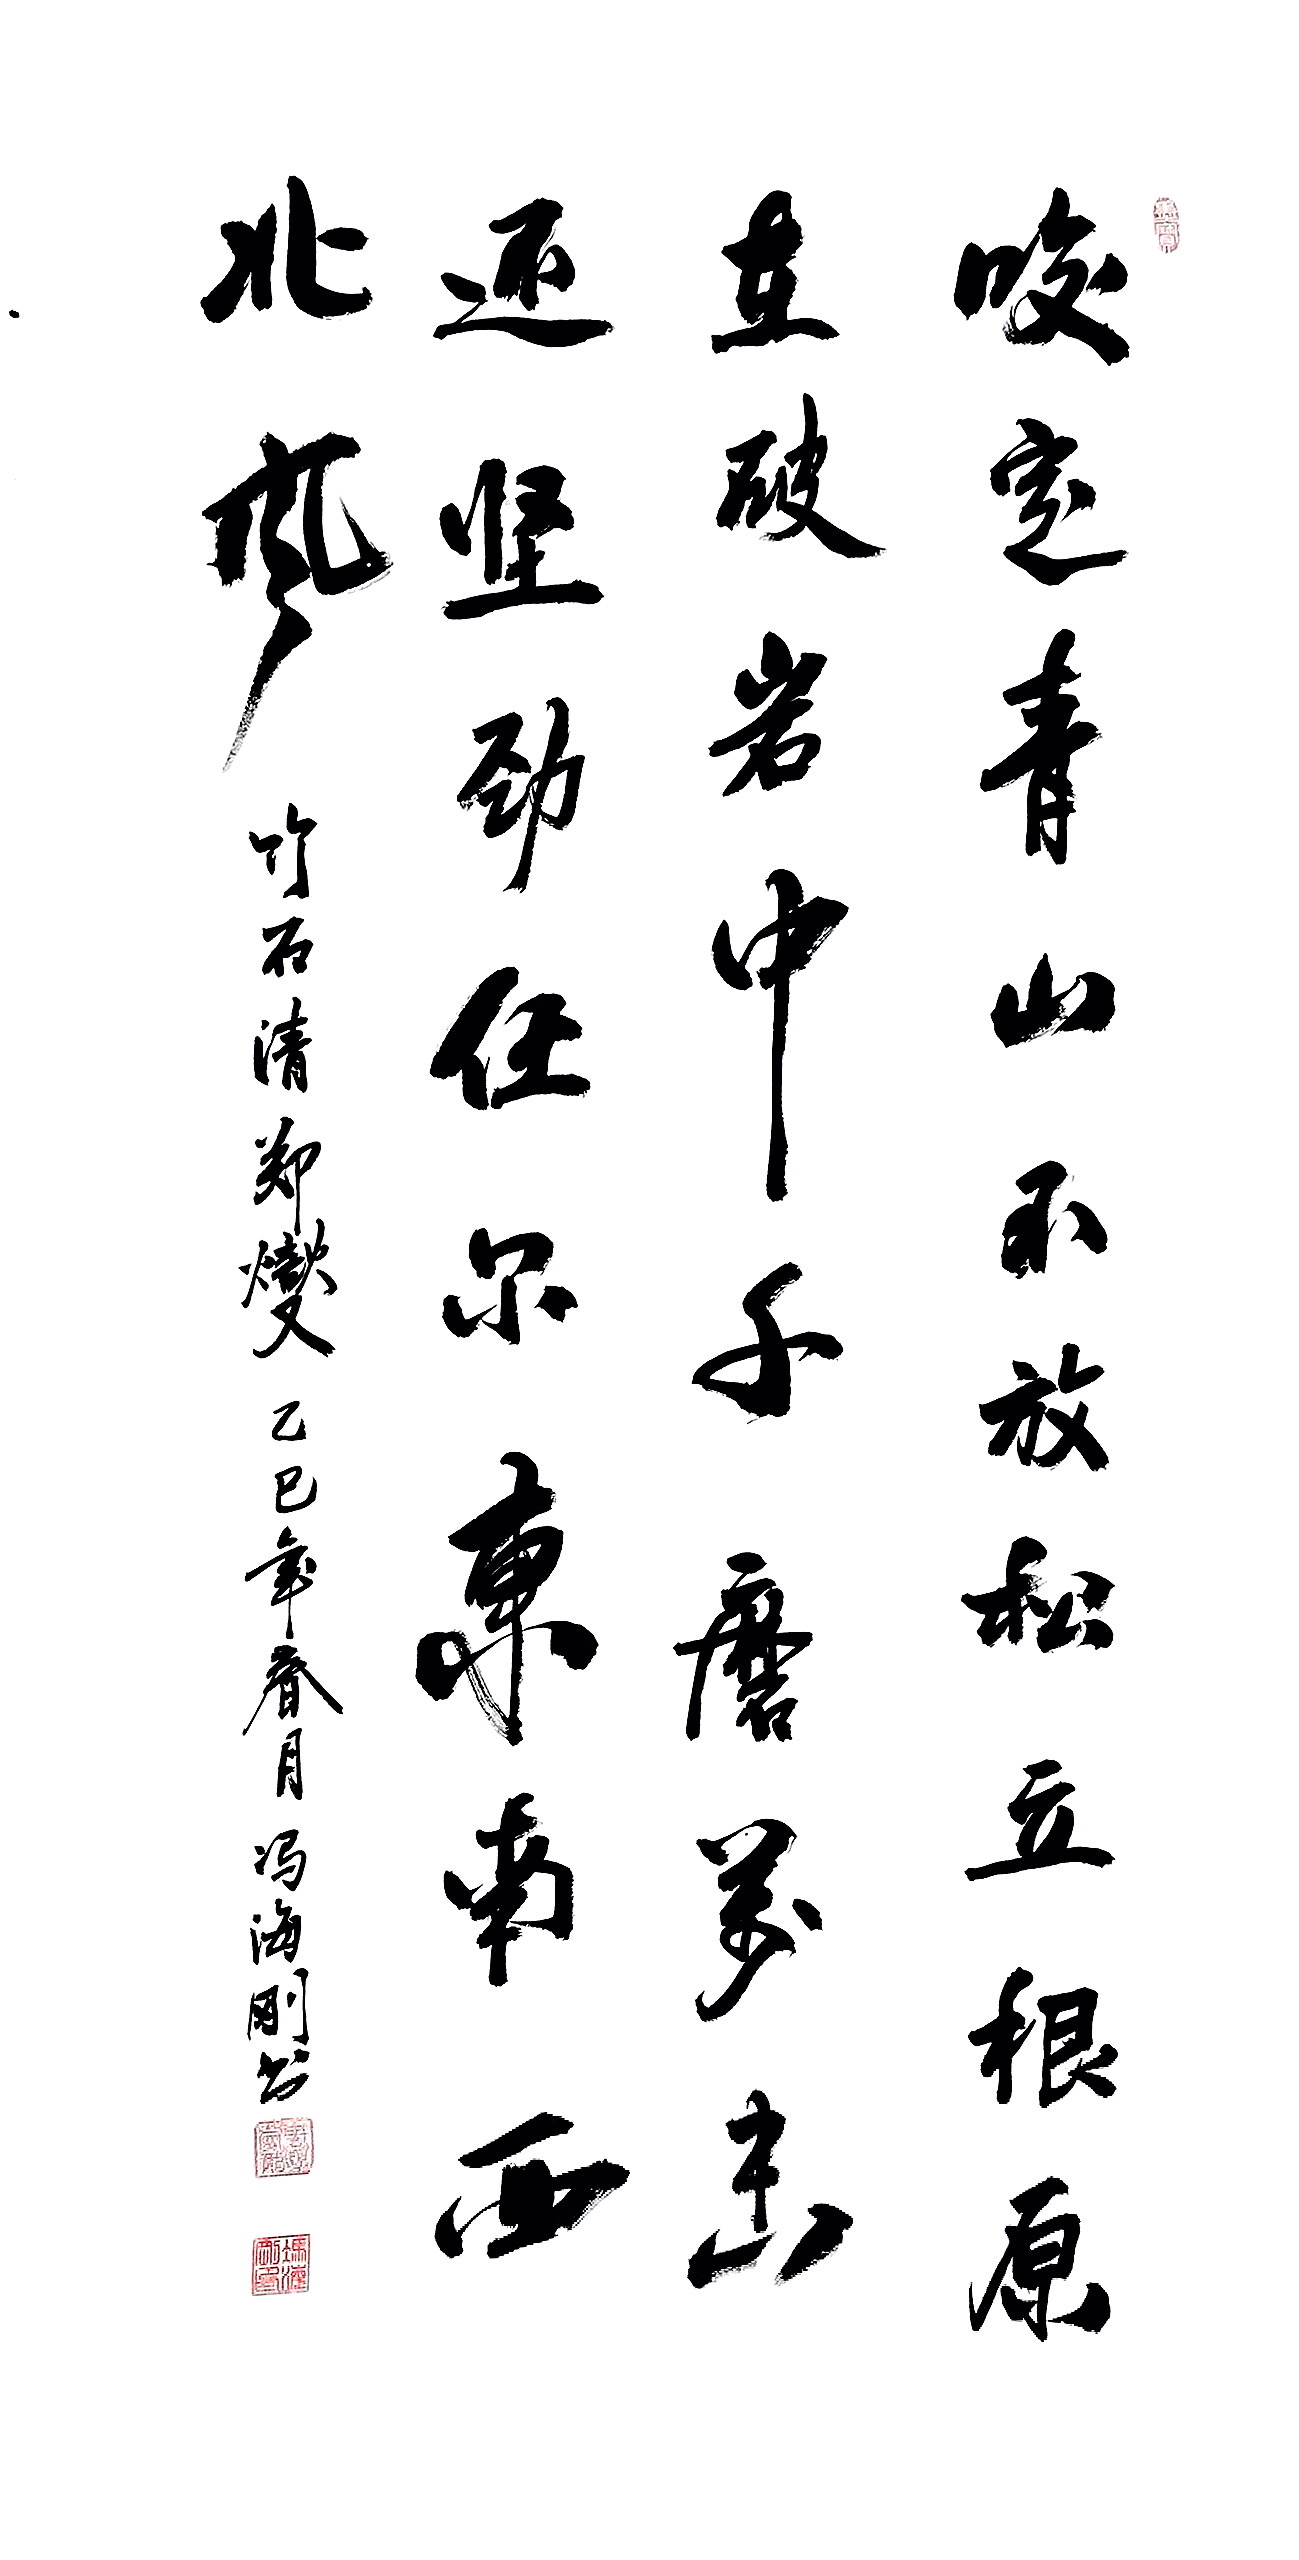 咬定青山不放松立根原
在破岩中千磨万击
还坚劲任尔东南西
北风
竹石清郑燮乙巳年春月冯海刚书